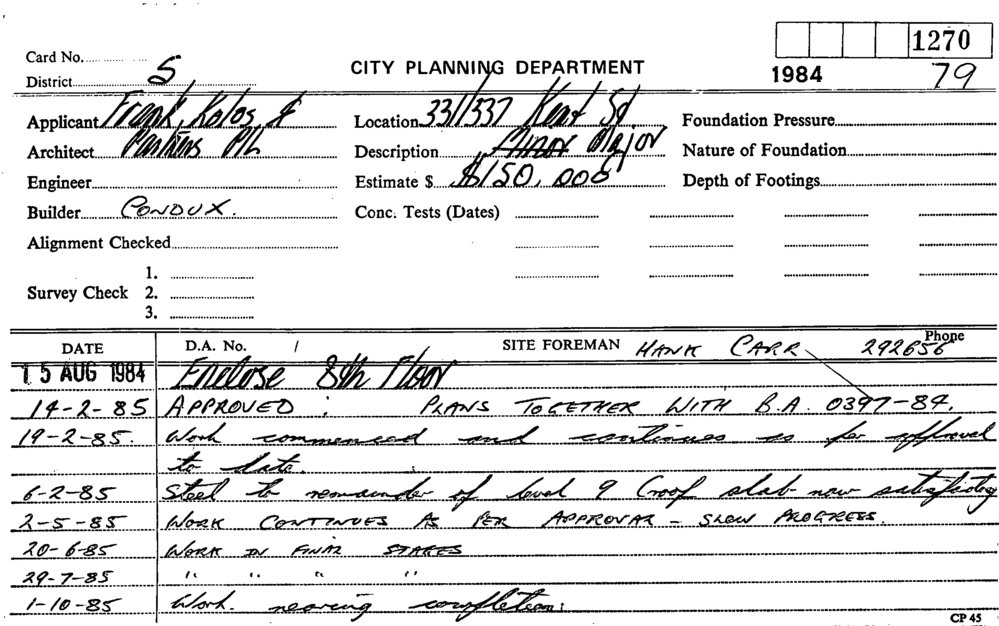 1270
Card No.
CITY PLANNING DEPARTMENT
1984 79
District 5
Applicant Frank, Kolos & Location 331/337 Kent St Foundation Pressure
Architect Partners P/L Description Major Nature of Foundation
Engineer Estimate $ $150,000 Depth of Footings
Builder CONDUX. Conc. Tests (Dates)
Alignment Checked
1.
Survey Check 2.
3.
DATE D.A. No. / SITE FOREMAN HANK CARR Phone 292656
15 AUG 1984 Enclose 8th Floor
14-2-85 APPROVED : PLANS TOGETHER WITH B.A. 0397-84.
19-2-85. Work commenced and continues as per approval
to date.
6-2-85 Steel to remainder of level 9 (roof slab now satisfactory
2-5-85 WORK CONTINUES AS PER APPROVAL - SLOW PROGRESS.
20-6-85 WORK IN FINAL STAGES
29-7-85 " " " "
1-10-85 Work. nearing completion:
CP 45